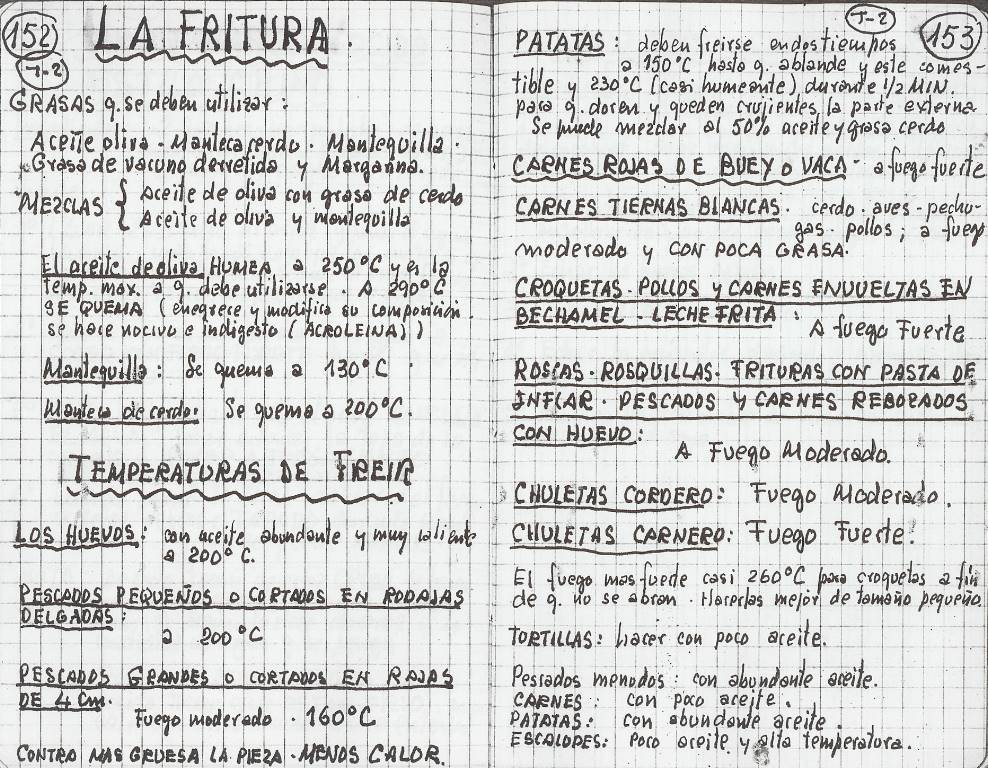 152
T-2
LA FRITURA.
GRASAS q. se deben utilizar:
Aceite oliva - Manteca cerdo · Mantequilla ·
Grasa de vacuno derretida y Margarina.
MEZCLAS { Aceite de oliva con grasa de cerdo
Aceite de oliva y mantequilla
El aceite de oliva HUMEA a 250°C y es la
temp. max. a q. debe utilizarse. A 290°C
SE QUEMA (enegrece y modifica su composición
se hace nocivo e indigesto (ACROLEINA))
Mantequilla: Se quema a 130°C.
Manteca de cerdo: Se quema a 200°C.
TEMPERATURAS DE FREIR
LOS HUEVOS: con aceite abundante y muy caliente
a 200°C.
PESCADOS PEQUEÑOS O CORTADOS EN RODAJAS
DELGADAS:
a 200°C
PESCADOS GRANDES O CORTADOS EN RAJAS
DE 4 Cm.
Fuego moderado · 160°C
CONTRO MAS GRUESA LA PIEZA - MENOS CALOR.
T-2
153
PATATAS: deben freirse en dos tiempos
a 150°C hasta q. ablande y este comes-
tible y 230°C (casi humeante) durante 1/2 MIN.
para q. doren y queden crujientes la parte externa
Se puede mezclar al 50% aceite y grasa cerdo
CARNES ROJAS DE BUEY O VACA - a fuego fuerte
CARNES TIERNAS BLANCAS. cerdo - aves - pechu-
gas - pollos; a fuego
moderado y CON POCA GRASA.
CROQUETAS - POLLOS Y CARNES ENVUELTAS EN
BECHAMEL - LECHE FRITA:
A fuego Fuerte
ROSCAS · ROSQUILLAS · FRITURAS CON PASTA DE
INFLAR · PESCADOS Y CARNES REBOZADOS
CON HUEVO:
A Fuego Moderado.
CHULETAS CORDERO: Fuego Moderado.
CHULETAS CARNERO: Fuego Fuerte.
El fuego mas fuede casi 260°C para croquetas a fin
de q. no se abran. Hacerlas mejor de tamaño pequeño
TORTILLAS: hacer con poco aceite.
Pescados menudos: con abundante aceite.
CARNES: con poco aceite.
PATATAS: con abundante aceite.
ESCALOPES: Poco aceite y alta temperatura.